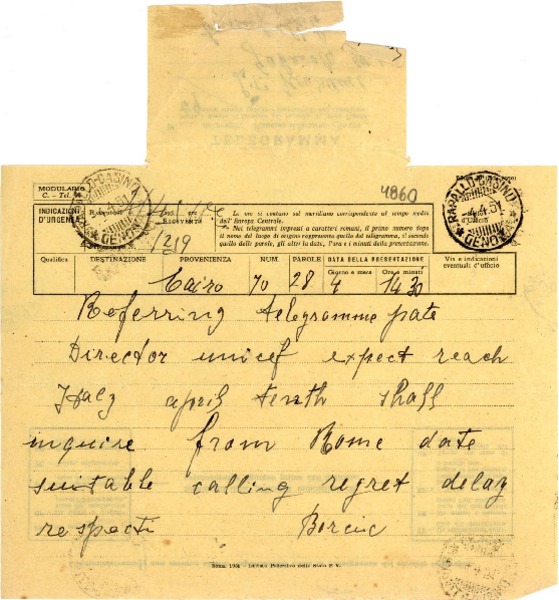 4860
MODULARIO
C. - Tel.
INDICAZIONI
D'URGENZA
RAPALLO-CASINO
4.4.51
GENOVA
1219
Le ore si contano sul meridiano corrispondente al tempo medio
dell'Europa Centrale.
Nei telegrammi impressi a caratteri romani, il primo numero dopo
il nome del luogo di origine rappresenta quello del telegramma, il secondo
quello delle parole, gli altri la data, l'ora e i minuti della presentazione.
RAPALLO-CASINO
4.4.51
GENOVA
Qualifica DESTINAZIONE PROVENIENZA NUM. PAROLE DATA DELLA PRESENTAZIONE Via e indicazioni
eventuali d'ufficio
Giorno e mese Ore e minuti
Cairo 70 28 4 14 30
Referring telegramme pate
Director unicef expect reach
Italy april tenth shall
inquire from Rome date
suitable calling regret delay
respects Borcic
TELEGRAMMA